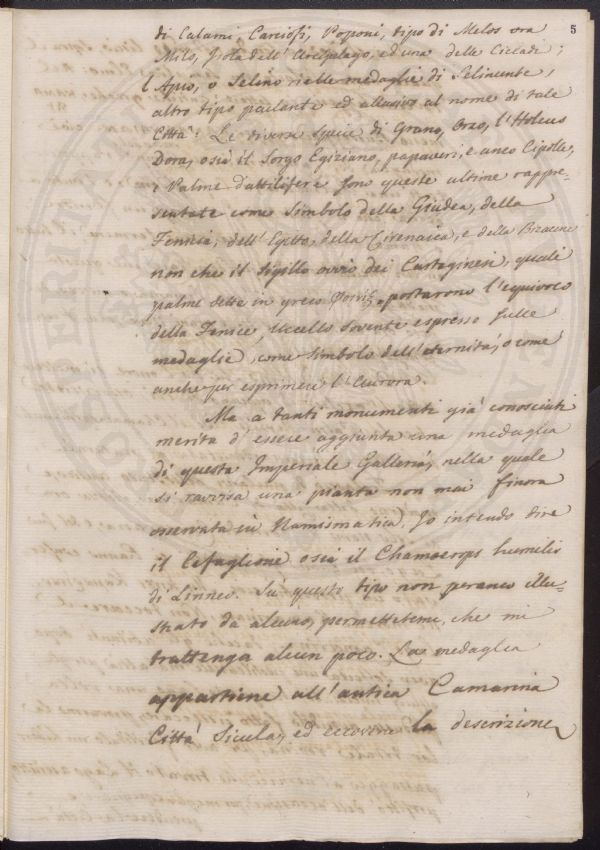 5
di Calami, Carciofi, Poponi, tipo di Melos ora
Milo, Isola dell' Arcipelago, ed una delle Cicladi;
l'Apio, o Selino nelle medaglie di Selinunte,
altro tipo parlante ed allusivo al nome di tale
Città: Le diverse specie di Grano, Orzo, l'Holcus
Dora, o sia il Sorgo Egiziano, papaveri, e anco Cipolle,
e Palme dattilifere sono queste ultime rappre-
sentate come simbolo della Giudea, della
Fenicia, dell' Egitto, della Cirenaica, e della
non che il sigillo ovvio dei Cartaginesi, quali
palme dette in greco portarono l'equivoco
della Fenice, Uccello sovente espresso sulle
medaglie, come simbolo dell' eternità, o come
anche per esprimere l'Aurora.
Ma a tanti monumenti già conosciuti
merita d' essere aggiunta una medaglia
di questa Imperiale Galleria, nella quale
si ravvisa una pianta non mai finora
osservata in Numismatica. Io intendo dire
il Cefaglione o sia il Chamoerops humilis
di Linneo. Su questo tipo non peranco illu-
strato da alcuno, permettetemi, che mi
trattenga alcun poco. La medaglia
appartiene all' antica Camarina
Città Sicula, ed eccovene la descrizione